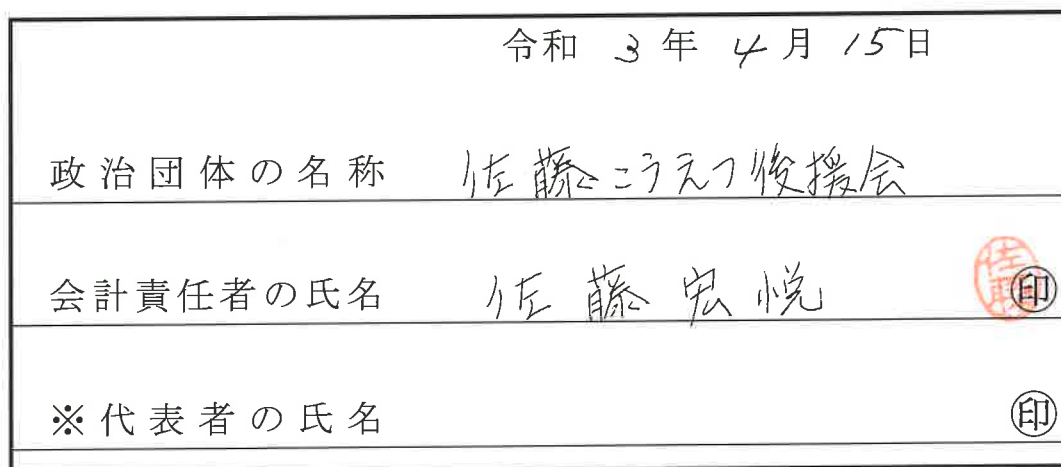 令和 3 年 4 月 15日
政治団体の名称 佐藤こうえつ後援会
会計責任者の氏名 佐藤宏悦 佐藤 ㊞
※代表者の氏名 ㊞